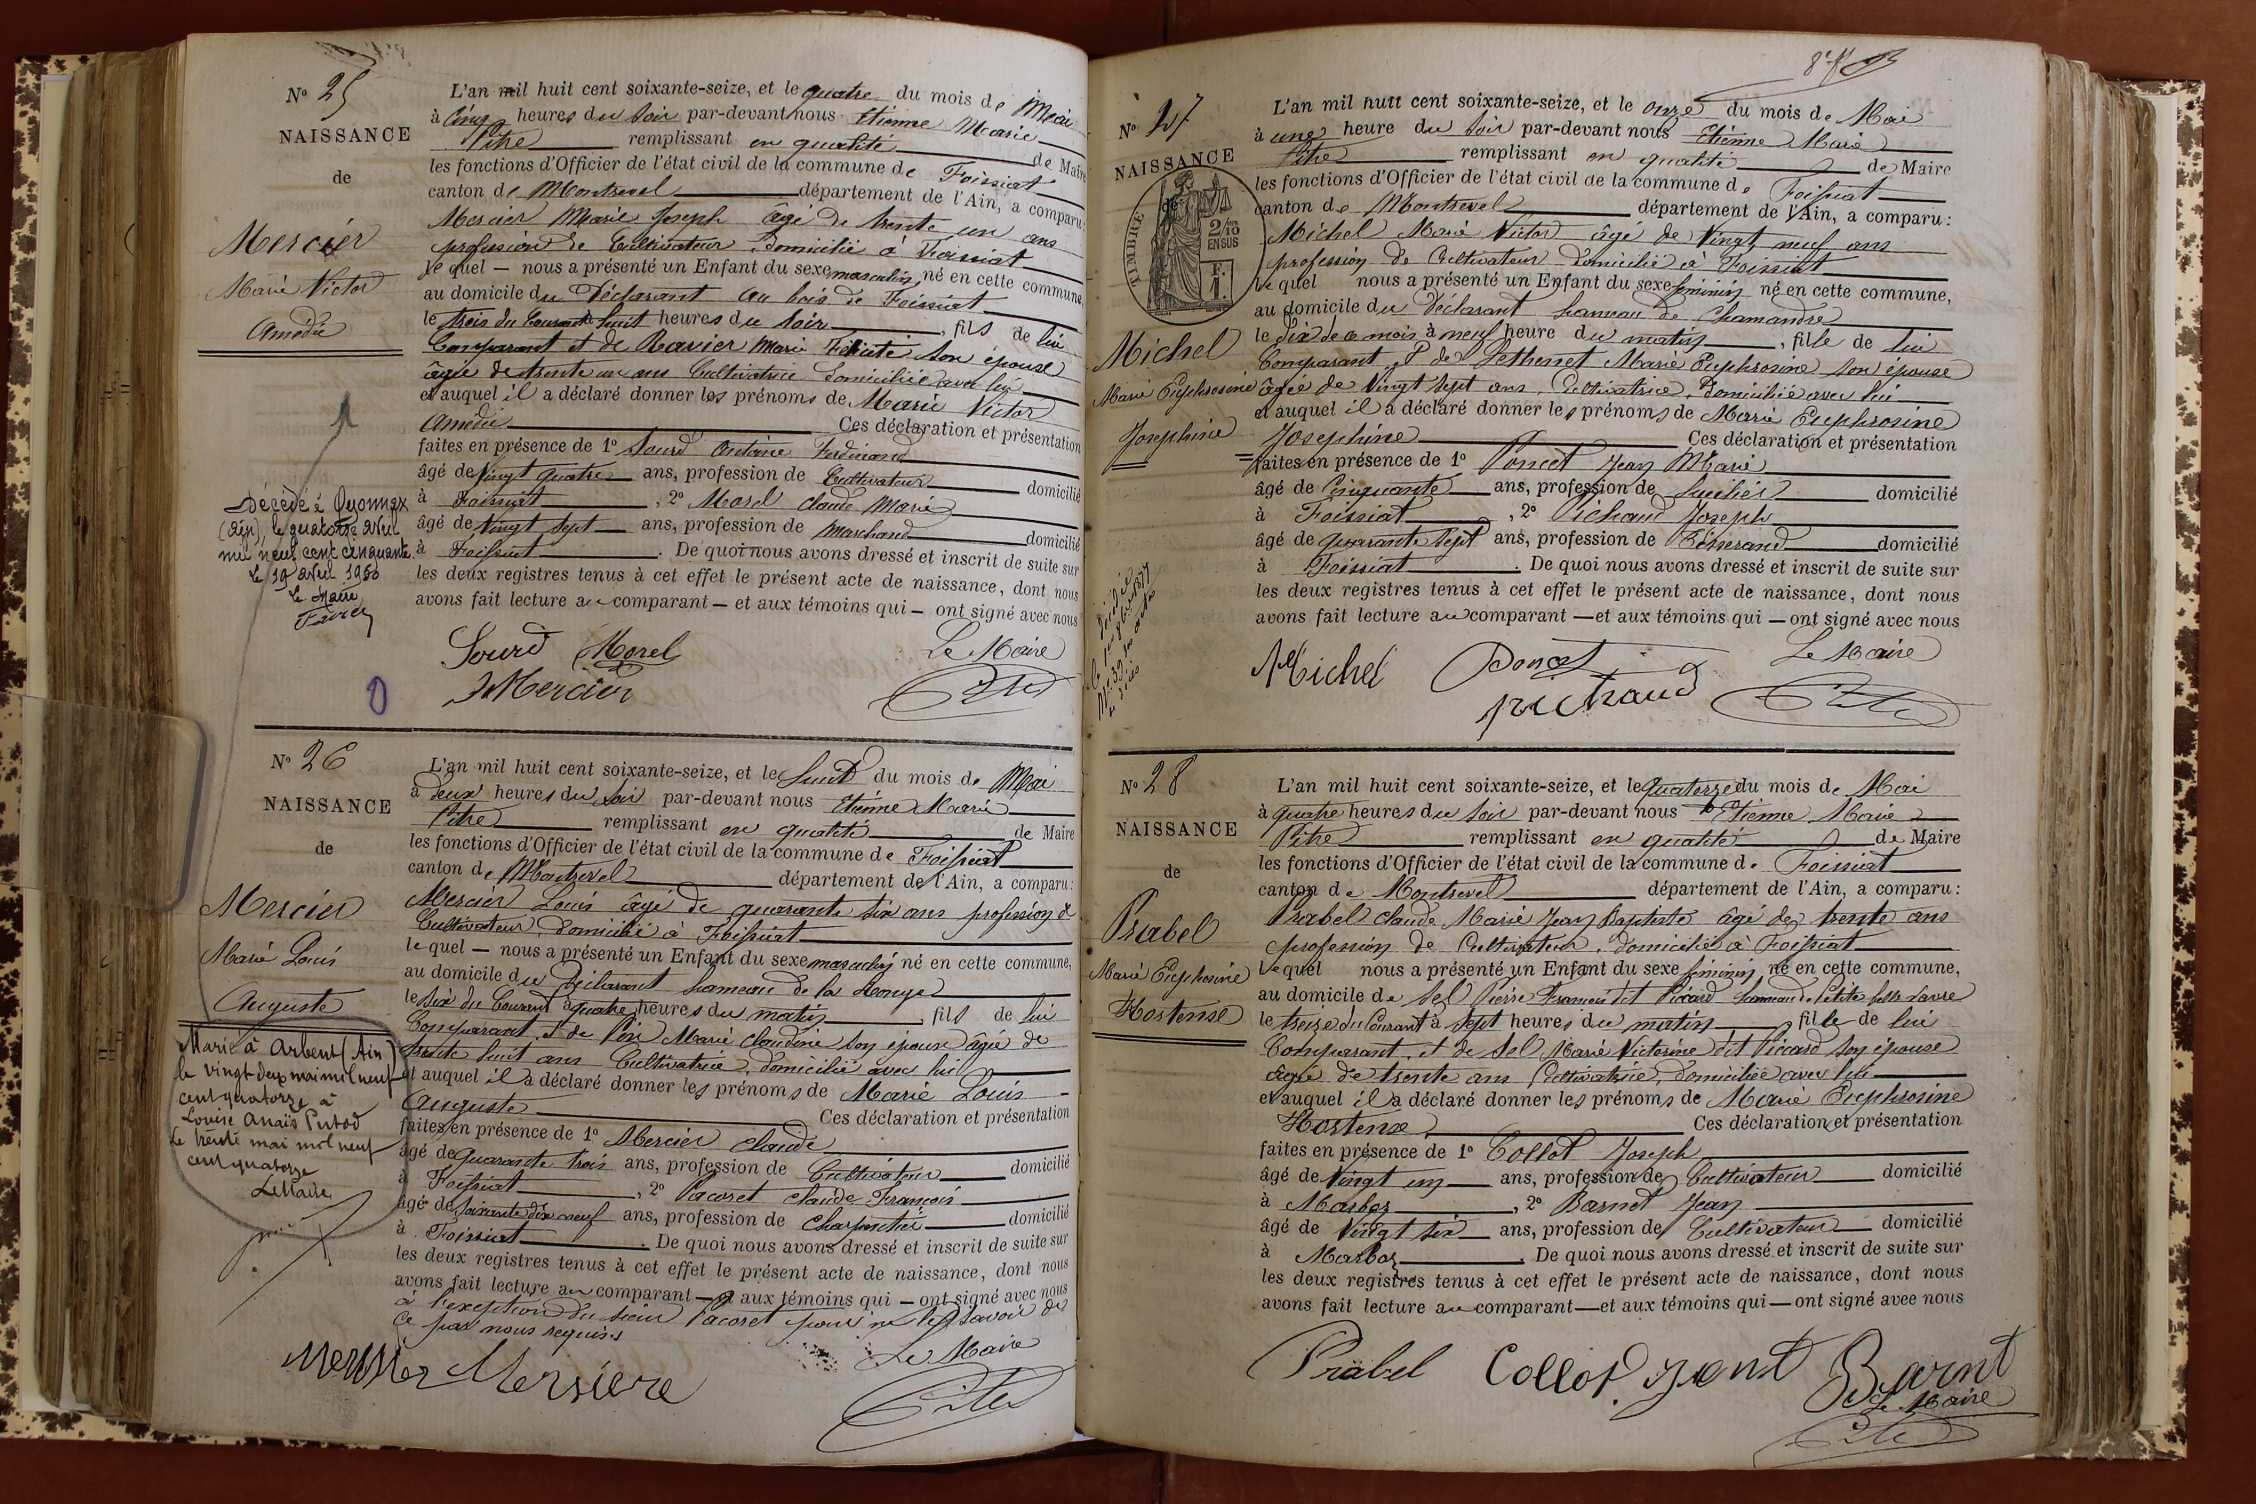 N° 25
NAISSANCE
de
Mercier
Marie Victor
Amédée
Décédé à Oyonnax
(Ain), le quatorze avril
mil neuf cent cinquante.
Le 19 avril 1950
Le Maire
L'an mil huit cent soixante-seize, et le quatre du mois de Mai
à Cinq heures du soir par-devant nous Etienne Marie
Pitre remplissant en qualité de Maire
les fonctions d'Officier de l'état civil de la commune de Foissiat
canton de Montrevel département de l'Ain, a comparu:
Mercier Marie Joseph âgé de trente un ans
profession de Cultivateur domicilié à Foissiat
Le quel — nous a présenté un Enfant du sexe masculin né en cette commune,
au domicile du Déclarant au bois de Foissiat
le trois du Courant à huit heures du soir, fils de lui
Comparant et de Ravier Marie Félicité son épouse
âgée de trente un ans Cultivatrice domiciliée avec lui
et auquel il a déclaré donner les prénoms de Marie Victor
Amédée Ces déclaration et présentation
faites en présence de 1° Sourd Antoine Ferdinand
âgé de Vingt quatre ans, profession de Cultivateur domicilié
à Foissiat, 2° Morel Claude Marie
âgé de Vingt sept ans, profession de Marchand domicilié
à Foissiat. De quoi nous avons dressé et inscrit de suite sur
les deux registres tenus à cet effet le présent acte de naissance, dont nous
avons fait lecture au comparant — et aux témoins qui — ont signé avec nous
Sourd Morel Le Maire
Mercier Pitre
N° 26
NAISSANCE
de
Mercier
Marie Louis
Auguste
Marié à Arbent (Ain)
le vingt deux mai mil neuf
cent quatorze à
Louise Anaïs Putod
Le trente mai mil neuf
cent quatorze
Le Maire
L'an mil huit cent soixante-seize, et le huit du mois de Mai
à deux heures du soir par-devant nous Etienne Marie
Pitre remplissant en qualité de Maire
les fonctions d'Officier de l'état civil de la commune de Foissiat
canton de Montrevel département de l'Ain, a comparu:
Mercier Louis âgé de quarante six ans profession de
Cultivateur, domicilié à Foissiat
le quel — nous a présenté un Enfant du sexe masculin né en cette commune,
au domicile du Déclarant hameau de la
le six du Courant à quatre heures du matin, fils de lui
Comparant, et de Marie Claudine son épouse âgée de
trente huit ans Cultivatrice, domiciliée avec lui
et auquel il a déclaré donner les prénoms de Marie Louis
Auguste Ces déclaration et présentation
faites en présence de 1° Mercier Claude
âgé de quarante trois ans, profession de Cultivateur domicilié
à Foissiat, 2° Pacoret Claude François
âgé de soixante dix neuf ans, profession de Charpentier domicilié
à Foissiat. De quoi nous avons dressé et inscrit de suite sur
les deux registres tenus à cet effet le présent acte de naissance, dont nous
avons fait lecture au comparant — et aux témoins qui — ont signé avec nous
à l'exception du sieur Pacoret pour ne le savoir de
ce par nous requis
Le Maire
Mersiere Pitre
N° 27
NAISSANCE
de
TIMBRE
2/10
EN SUS
Michel
Marie Euphrosine
Josephine
L'an mil huit cent soixante-seize, et le onze du mois de Mai
à une heure du soir par-devant nous Etienne Marie
Pitre remplissant en qualité de Maire
les fonctions d'Officier de l'état civil de la commune de Foissiat
canton de Montrevel département de l'Ain, a comparu:
Michel Marie Victor âgé de Vingt neuf ans
profession de Cultivateur domicilié à Foissiat
Le quel nous a présenté un Enfant du sexe féminin né en cette commune,
au domicile du Déclarant hameau de Chamandre
le dix de ce mois à neuf heure du matin, fille de lui
Comparant et de Pethenet Marie Euphrosine son épouse
âgée de Vingt sept ans, Cultivatrice, domiciliée avec lui
et auquel il a déclaré donner les prénoms de Marie Euphrosine
Josephine Ces déclaration et présentation
faites en présence de 1° Poncet Jean Marie
âgé de Cinquante ans, profession de domicilié
à Foissiat, 2° Pichaud Joseph
âgé de quarante sept ans, profession de Tisserand domicilié
à Foissiat. De quoi nous avons dressé et inscrit de suite sur
les deux registres tenus à cet effet le présent acte de naissance, dont nous
avons fait lecture au comparant — et aux témoins qui — ont signé avec nous
Michel Poncet Le Maire
pichaud Pitre
N° 28
NAISSANCE
de
Prabel
Marie Euphrosine
Hostense
L'an mil huit cent soixante-seize, et le Quatorze du mois de Mai
à quatre heures du soir par-devant nous Etienne Marie
Pitre remplissant en qualité de Maire
les fonctions d'Officier de l'état civil de la commune de Foissiat
canton de Montrevel département de l'Ain, a comparu:
Prabel Claude Marie Jean Baptiste âgé de trente ans
profession de Cultivateur, domicilié à Foissiat
Le quel nous a présenté un Enfant du sexe féminin né en cette commune,
au domicile de Sel Pierre François dit Piccard hameau de Petite
le treize du Courant à sept heures du matin, fille de lui
Comparant, et de Sel Marie Victorine dit Piccard son épouse
âgée de trente ans Cultivatrice, domiciliée avec lui
et auquel il a déclaré donner les prénoms de Marie Euphrosine
Hostense Ces déclaration et présentation
faites en présence de 1° Collot Joseph
âgé de Vingt un ans, profession de Cultivateur domicilié
à Marboz, 2° Barnet Jean
âgé de Vingt six ans, profession de Cultivateur domicilié
à Marboz. De quoi nous avons dressé et inscrit de suite sur
les deux registres tenus à cet effet le présent acte de naissance, dont nous
avons fait lecture au comparant — et aux témoins qui — ont signé avec nous
Prabel Collot Barnt
Le Maire
Pitre